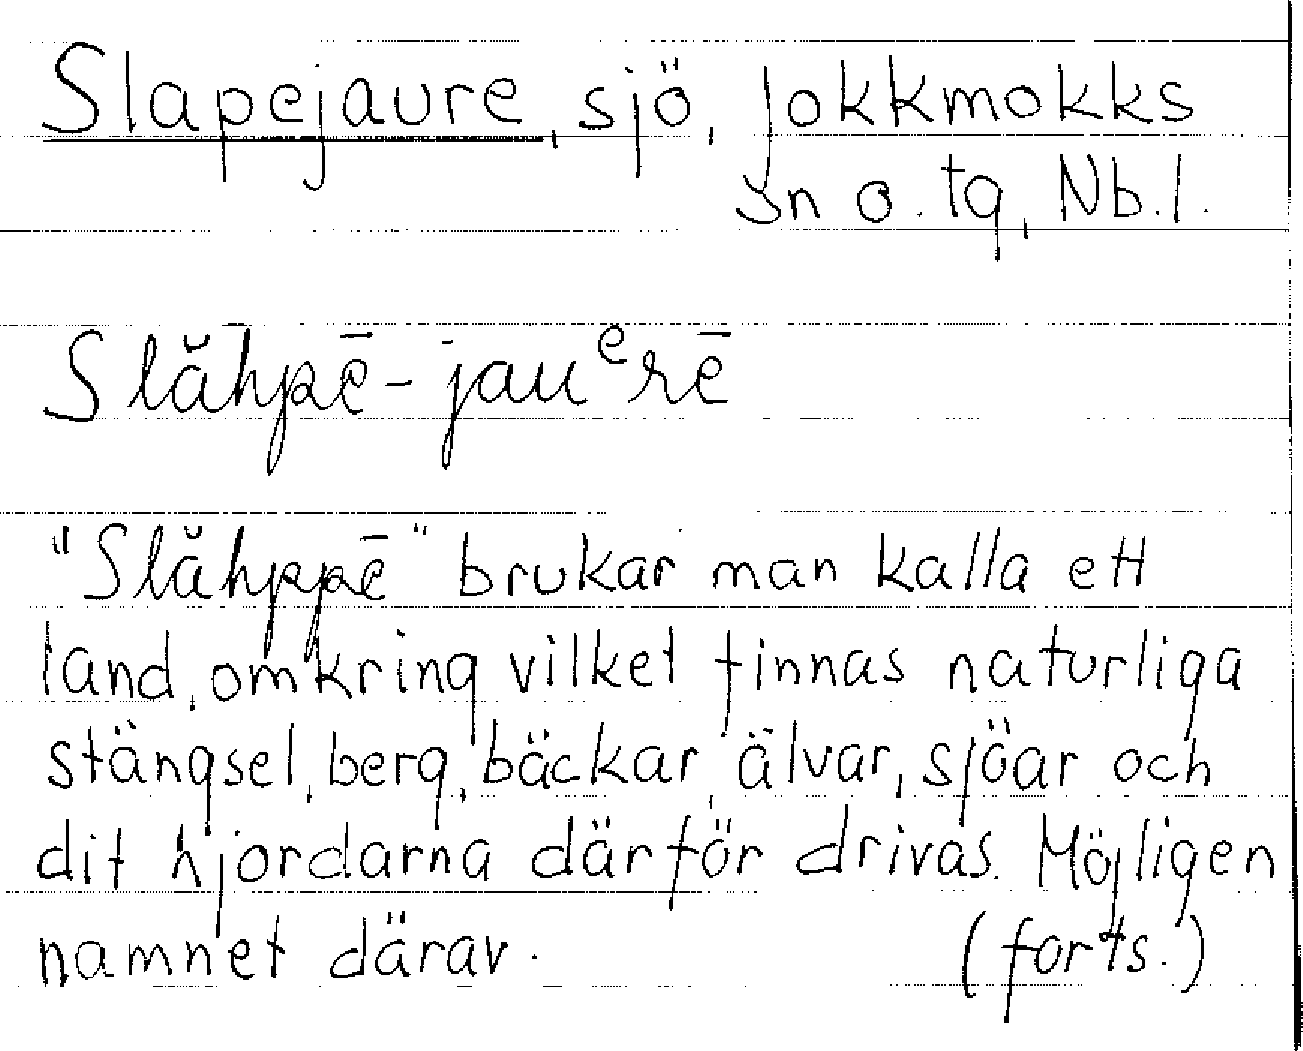 Slapejaure, sjö, Jokkmokks
sn o. tg, Nb.l.
Slăhpē-jauᵉrē
"Slăhppē" brukar man kalla ett
land, omkring vilket finnas naturliga
stängsel, berg, bäckar, älvar, sjöar och
dit hjordarna därför drivas. Möjligen
namnet därav.
(forts.)